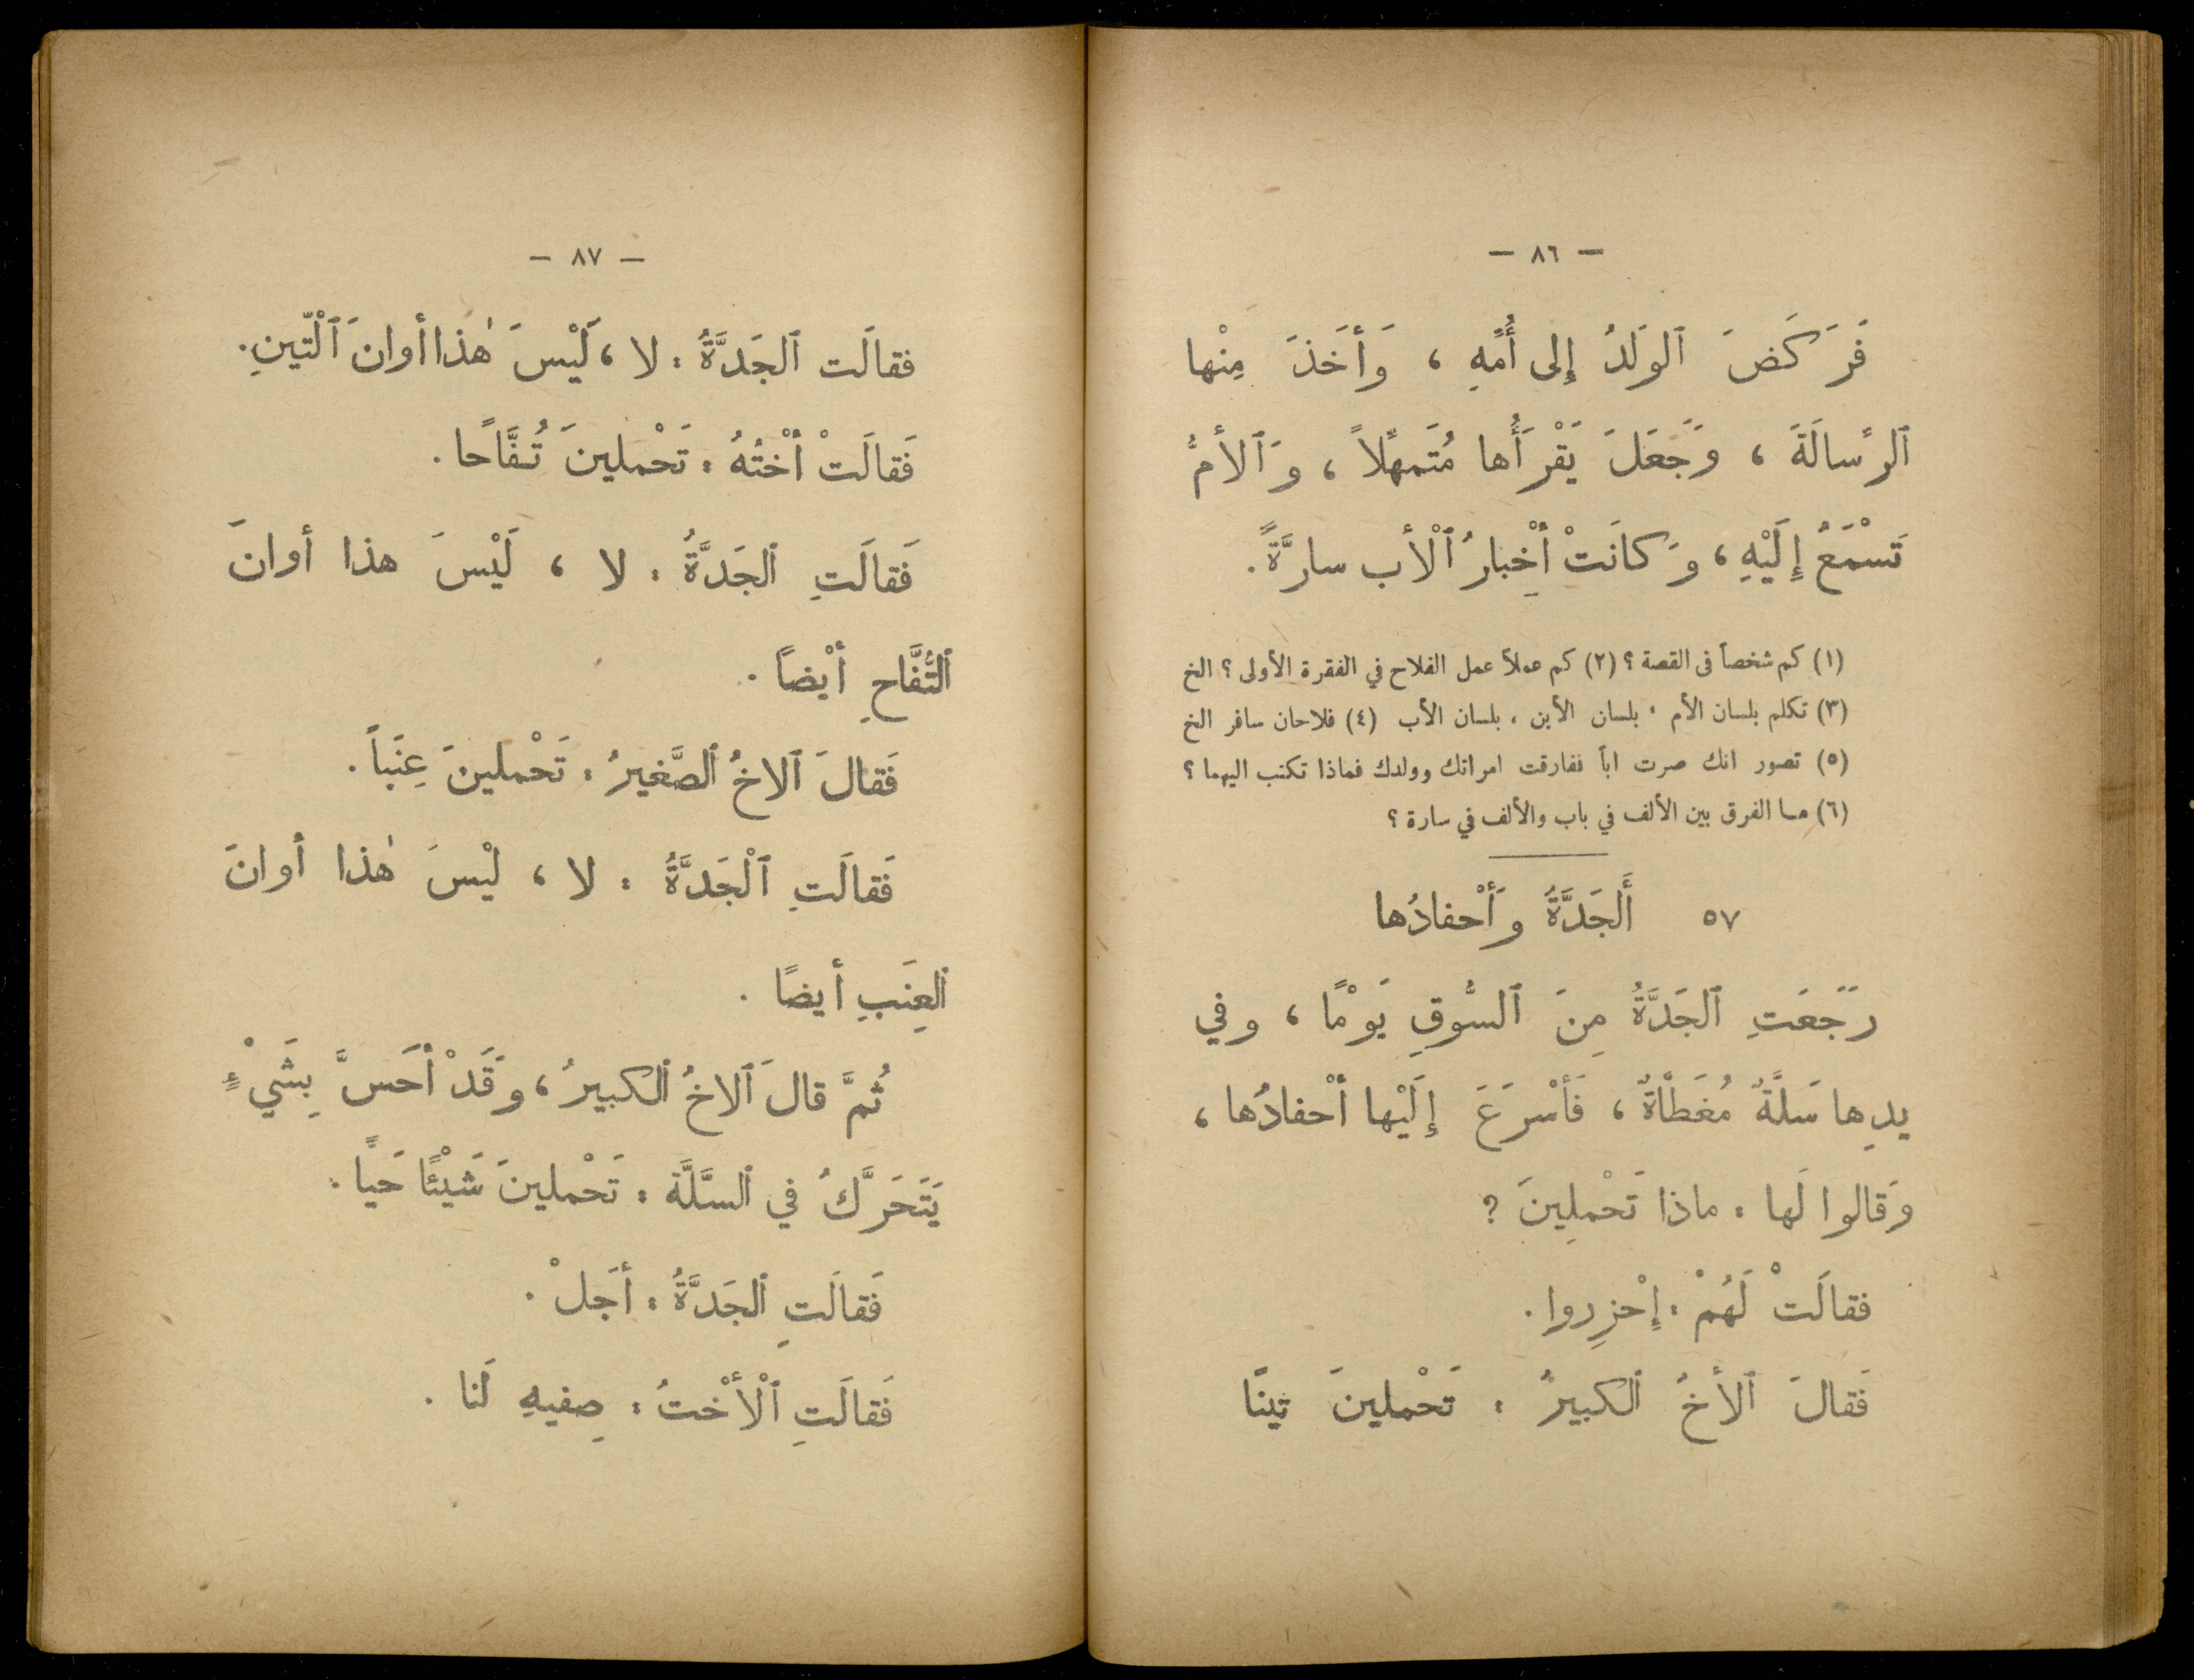 — ٨٦ —
فَرَكَضَ ٱلوَلَدُ إِلى أُمِّهِ ، وَأَخَذَ مِنْها
ٱلرِّسالَةَ ، وَجَعَلَ يَقْرَأُها مُتَمهِّلاً ، وَٱلأمُّ
تَسْمَعُ إِلَيْهِ ، وَكانَتْ أَخْبارُ ٱلْأَب سارَّةً .
(١) كم شخصاً فى القصة ؟ (٢) كم عملاً عمل الفلاح في الفقرة الأولى ؟ الخ
(٣) تكلم بلسان الأم ، بلسان الأبن ، بلسان الأب (٤) فلاحان سافر الخ
(٥) تصور انك صرت اباً ففارقت امراتك وولدك فماذا تكتب اليهما ؟
(٦) مـا الفرق بين الألف في باب والألف في سارة ؟
٥٧ أَلجَدَّةُ وَأَحْفادُها
رَجَعَتِ ٱلجَدَّةُ مِنَ ٱلسُّوقِ يَوْمًا ، وفي
يدِها سَلَّةٌ مُغَطّاةٌ ، فَأَسْرَعَ إِلَيْها أَحْفادُها ،
وَقالوا لَها : ماذا تَحْمِلِينَ ؟
فقالَتْ لَهُمْ : إِحْزِروا .
فَقالَ ٱلأَخُ ٱلكبيرُ : تَحْملينَ تينًا
— ٨٧ —
فقالَت ٱلجَدَّةُ : لا ، لَيْسَ هٰذا أوانَ ٱلْتّينِ .
فَقالَتْ أُخْتُهُ : تَحْملينَ تُفَّاحًا .
فَقالَتِ ٱلجَدَّةُ : لا ، لَيْسَ هذا أوانَ
ٱلتُّفَّاحِ أَيْضاً .
فَقالَ ٱلاخُ ٱلصَّغيرُ : تَحْملينَ عِنَباً .
فَقالَتِ ٱلْجَدَّةُ : لا ، ليْسَ هٰذا أوانَ
ٱلعِنَبِ أيضًا .
ثُمَّ قالَ ٱلاخُ ٱلكبيرُ ، وَقَدْ أَحَسَّ بِشَيْءٍ
يَتَحَرَّكُ في ٱلسَّلَّة : تَحْملينَ شَيْئًا حَيًّا .
فَقالَتِ ٱلجَدَّةُ : أجَلْ .
فَقالَتِ ٱلْأُخْتُ : صِفيهِ لَنا .